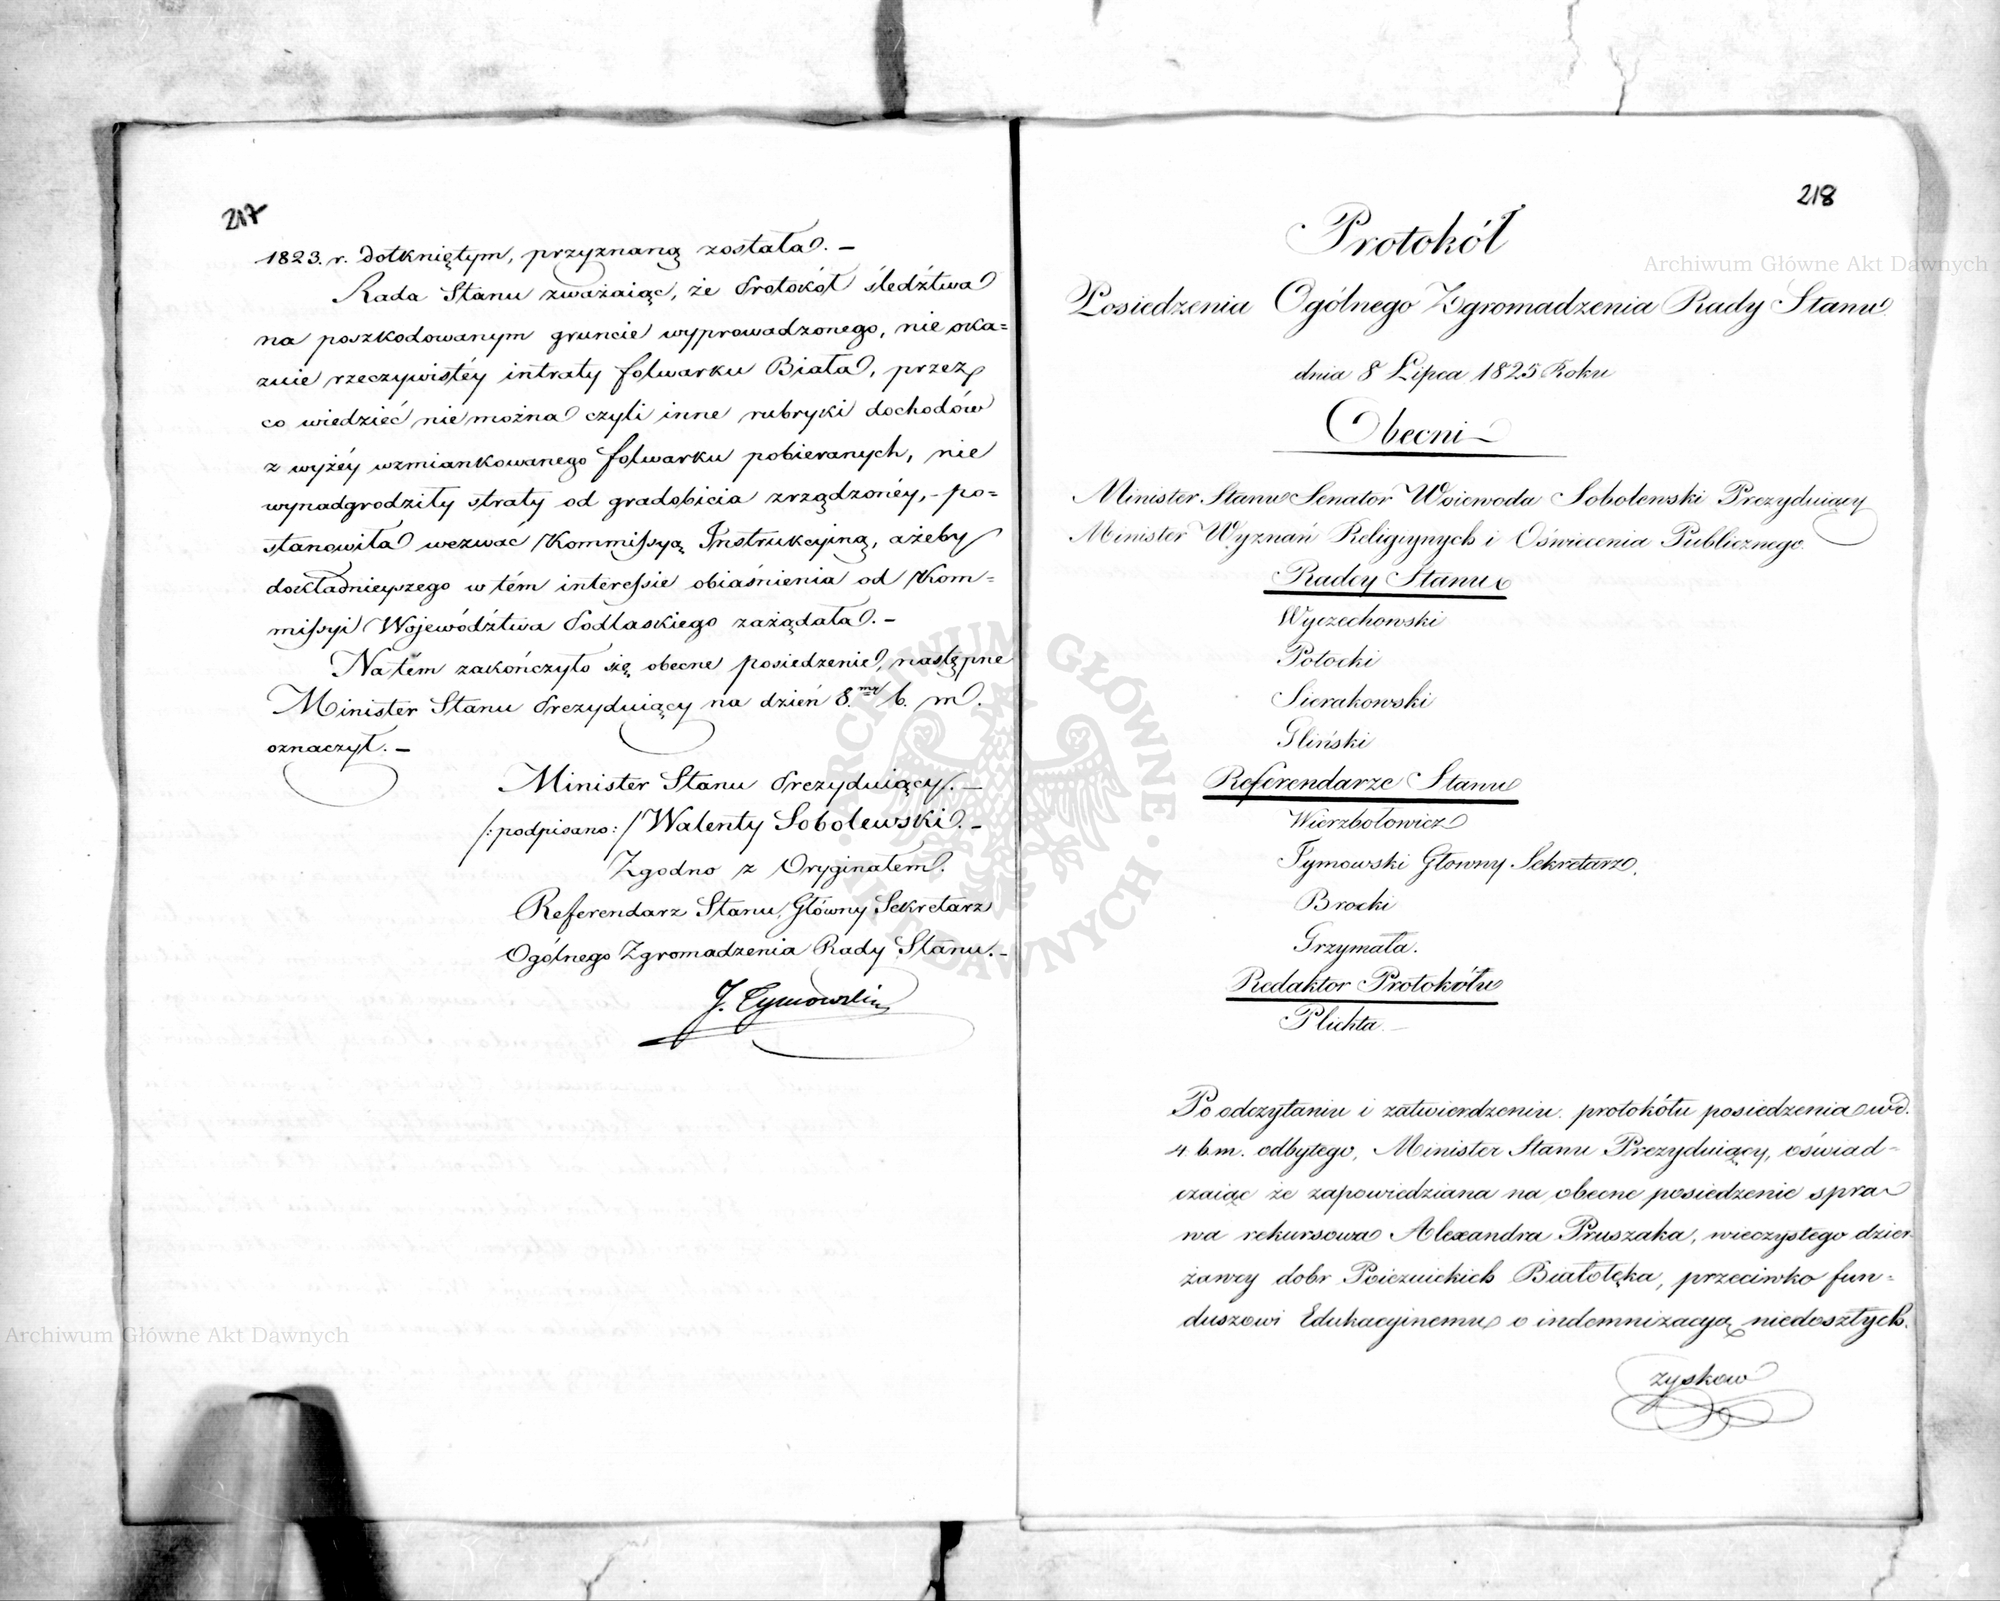 217
1823. r. dotkniętym, przyznaną została. –
Rada Stanu zważaiąc, że Protokół śledztwa
na poszkodowanym gruncie wyprowadzonego, nie oka=
zuie rzeczywistéy intraty folwarku Biała, przez
co wiedzieć nie można czyli inne rubryki dochodów
z wyżéy wzmiankowanego folwarku pobieranych, nie
wynadgrodziły straty od gradobicia zrządzonéy, – po=
stanowiła wezwać Kommissyą Instrukcyiną, ażeby
dokładnieyszego w tém interessie obiaśnienia od Kom=
missyi Województwa Podlaskiego zażądała. –
Na tém zakończyło się obecne posiedzenie, następne
Minister Stanu Prezyduiący na dzień 8. b. m.
oznaczył. –
Minister Stanu Prezyduiący. –
/:podpisano:/ Walenty Sobolewski. –
Zgodno z Oryginałem.
Referendarz Stanu, Główny Sekretarz
Ogólnego Zgromadzenia Rady Stanu. –
J. Tymowski
218
Protokół
Posiedzenia Ogólnego Zgromadzenia Rady Stanu
dnia 8 Lipca 1825 Roku
Obecni
Minister Stanu Senator Woiewoda Sobolewski Prezyduiący
Minister Wyznań Religiynych i Oświecenia Publicznego.
Radcy Stanu
Wyczechowski
Potocki
Sierakowski
Gliński
Referendarze Stanu
Wierzbołowicz
Tymowski Głowny Sekretarz.
Brocki
Grzymała.
Redaktor Protokółu
Plichta
Po odczytaniu i zatwierdzeniu protokółu posiedzenia w d.
4 b.m. odbytego, Minister Stanu Prezyduiący, oświad=
czaiąc że zapowiedziana na obecne posiedzenie spra
wa rekursowa Alexandra Pruszaka, wieczystego dzier
żawcy dobr Poiezuickich Białołęka, przeciwko fun=
duszowi Edukacyinemu o indemnizacyą niedoszłych
zysków
Archiwum Główne Akt Dawnych
Archiwum Główne Akt Dawnych
ARCHIWUM GŁÓWNE AKT DAWNYCH